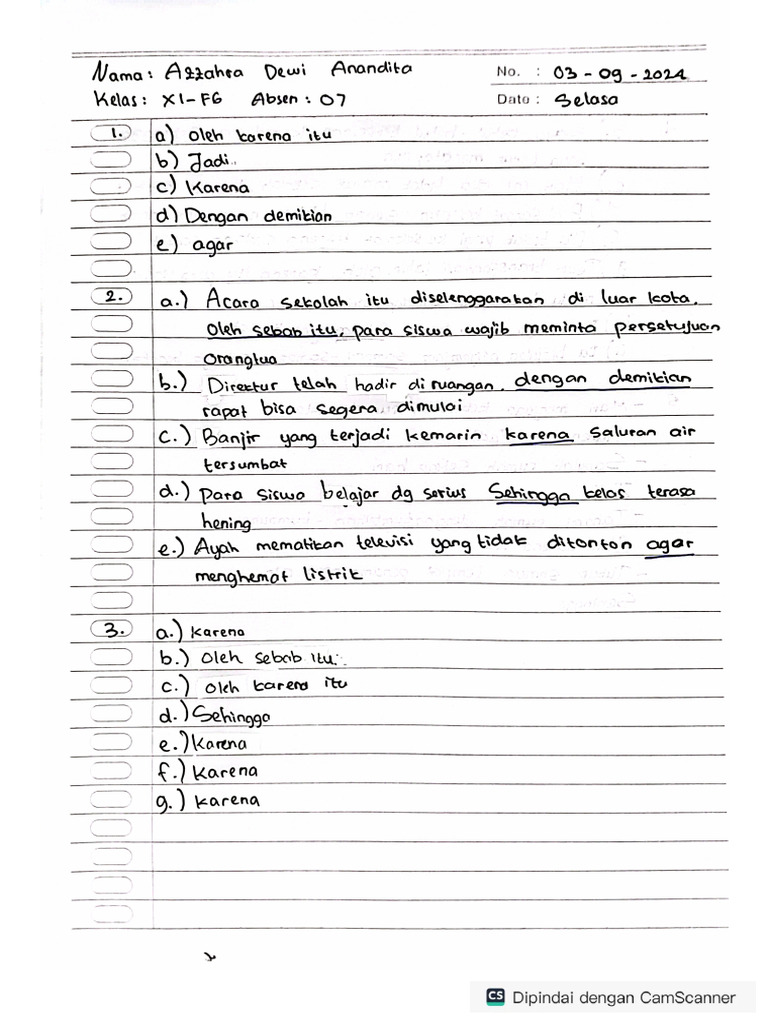 Nama : Azzahra Dewi Anandita
No. : 03 - 09 - 2024
Kelas : XI-F6 Absen : 07
Date : Selasa
1. a) oleh karena itu
b) Jadi.
c) Karena
d) Dengan demikian
e) agar
2. a.) Acara sekolah itu diselenggarakan di luar kota.
Oleh sebab itu, para siswa wajib meminta persetujuan
orangtua
b.) Direktur telah hadir di ruangan. dengan demikian
rapat bisa segera dimulai
c.) Banjir yang terjadi kemarin karena saluran air
tersumbat
d.) para siswa belajar dg serius Sehingga kelas terasa
hening
e.) Ayah mematikan televisi yang tidak ditonton agar
menghemat listrik
3. a.) karena
b.) Oleh sebab itu.
c.) oleh karena itu
d.) Sehingga
e.) Karena
f.) Karena
g.) karena
CS Dipindai dengan CamScanner